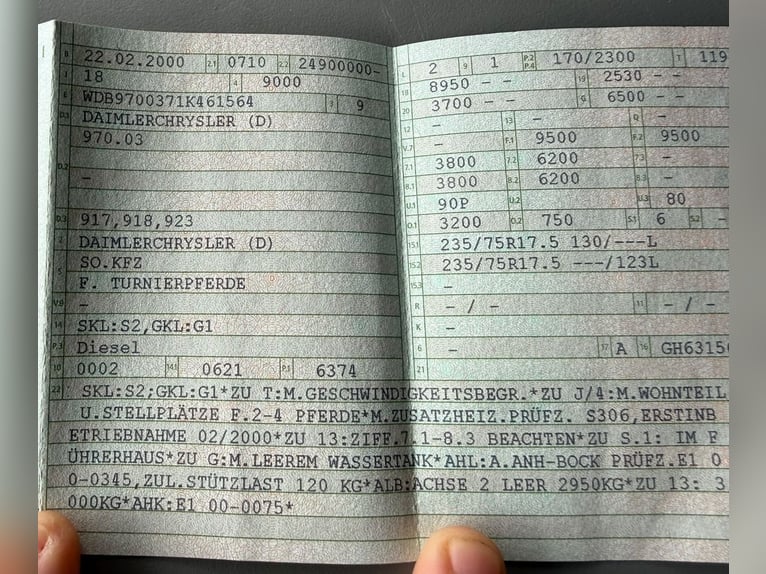 B 22.02.2000 2.1 0710 2.2 24900000-
J 18 4 9000
E WDB9700371K461564 3 9
D.1 DAIMLERCHRYSLER (D)
970.03
D.2
–
D.3 917,918,923
2 DAIMLERCHRYSLER (D)
5 SO.KFZ
F. TURNIERPFERDE
V.9 –
14 SKL:S2,GKL:G1
P.3 Diesel
10 0002 14.1 0621 P.1 6374
L 2 9 1 P.2 P.4 170/2300 T 119
18 8950 – – 19 2530 – –
20 3700 – – G 6500 – –
12 – 13 – Q –
V.7 – F.1 9500 F.2 9500
7.1 3800 7.2 6200 7.3 –
8.1 3800 8.2 6200 8.3 –
U.1 90P U.2 U.3 80
O.1 3200 O.2 750 S.1 6 S.2 –
15.1 235/75R17.5 130/---L
15.2 235/75R17.5 ---/123L
15.3 –
R – / – 11 – / –
K –
6 – 17 A 16 GH6315
21
22 SKL:S2;GKL:G1*ZU T:M.GESCHWINDIGKEITSBEGR.*ZU J/4:M.WOHNTEIL
U.STELLPLÄTZE F.2-4 PFERDE*M.ZUSATZHEIZ.PRÜFZ. S306,ERSTINB
ETRIEBNAHME 02/2000*ZU 13:ZIFF.7.1-8.3 BEACHTEN*ZU S.1: IM F
ÜHRERHAUS*ZU G:M.LEEREM WASSERTANK*AHL:A.ANH-BOCK PRÜFZ.E1 0
0-0345,ZUL.STÜTZLAST 120 KG*ALB:ACHSE 2 LEER 2950KG*ZU 13: 3
000KG*AHK:E1 00-0075*